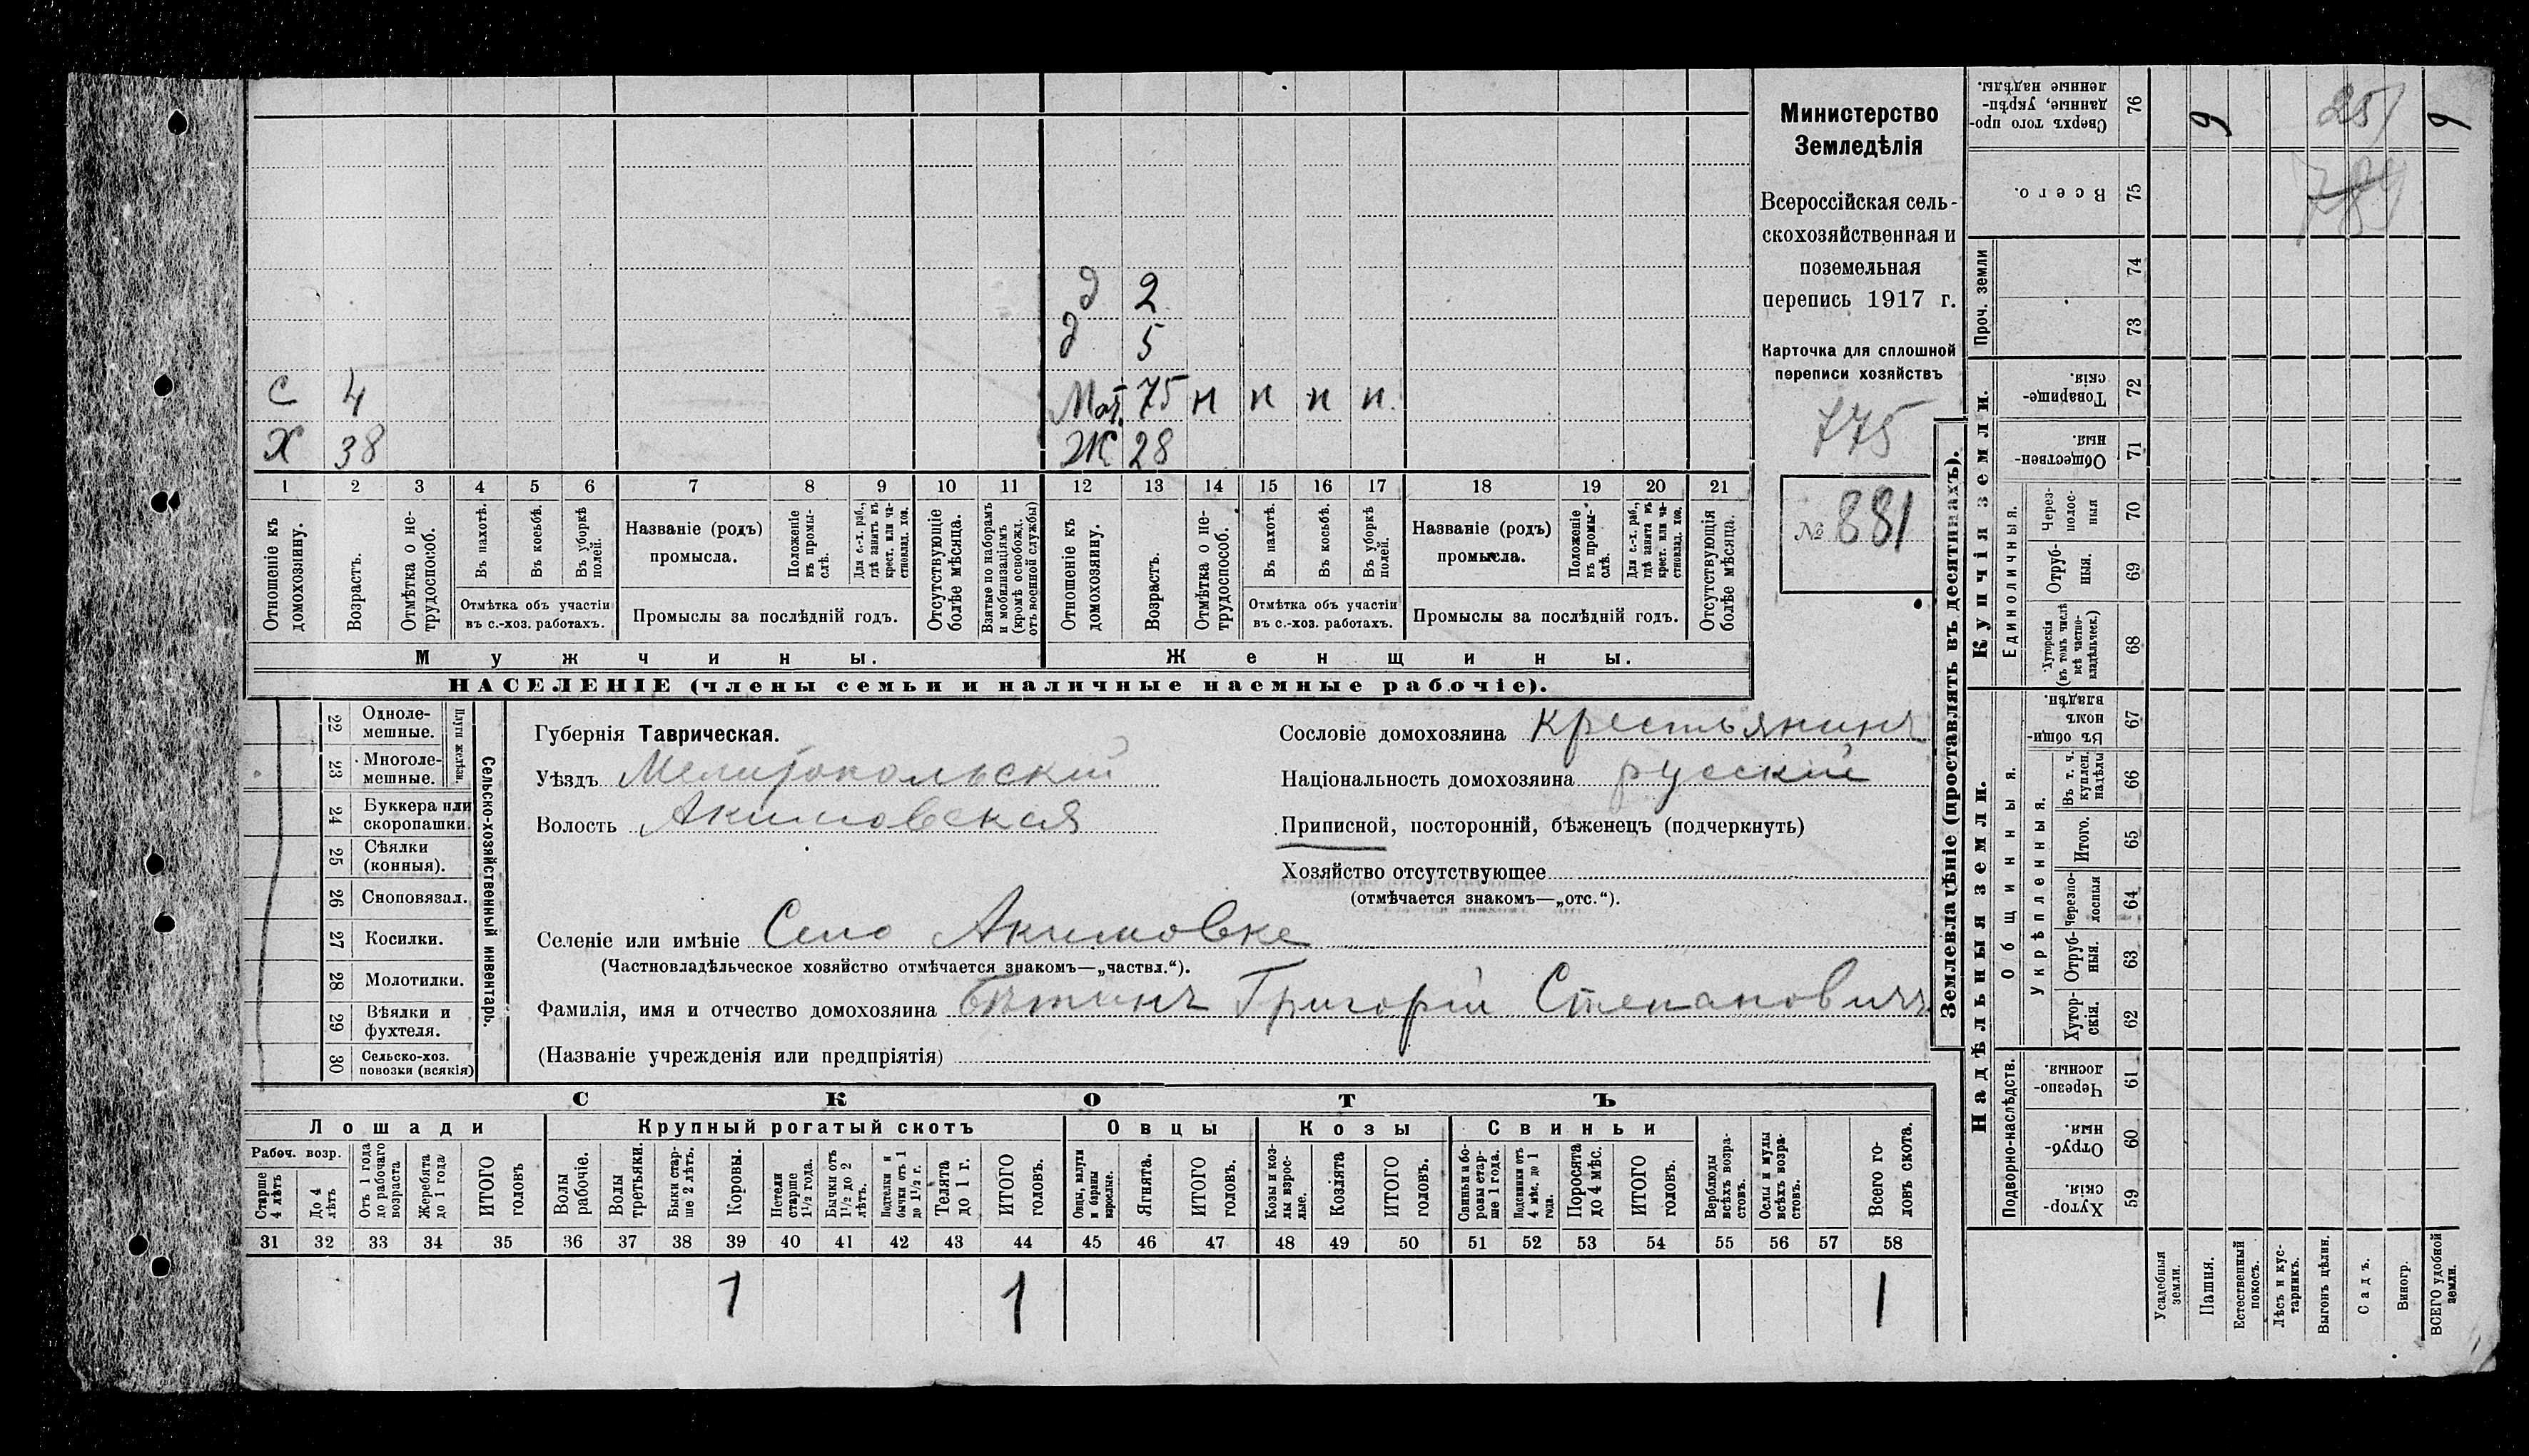 Министерство
Земледѣлія
Всероссійская сель-
скохозяйственная и
поземельная
перепись 1917 г.
Карточка для сплошной
переписи хозяйствъ
775
№ 881
д 2
д 5
С 4 Мат. 75 н н н н
Х 38 Ж 28
1 2 3 4 5 6 7 8 9 10 11 12 13 14 15 16 17 18 19 20 21
Отношеніе къ домохозяину.
Возрастъ.
Отмѣтка о не-трудоспособ.
Въ пахотѣ.
Въ косьбѣ.
Въ уборкѣ полей.
Отмѣтка объ участіи въ с.-хоз. работахъ.
Названіе (родъ) промысла.
Положеніе въ промы-слѣ.
Для с.-х. раб., гдѣ занятъ въ крест. или ча-стновлад. хоз.
Промыслы за послѣдній годъ.
Отсутствующіе болѣе мѣсяца.
Взятые по наборамъ и мобилизаціямъ (кромѣ освобожд. отъ военной службы)
Отношеніе къ домохозяину.
Возрастъ.
Отмѣтка о не-трудоспособ.
Въ пахотѣ.
Въ косьбѣ.
Въ уборкѣ полей.
Отмѣтка объ участіи въ с.-хоз. работахъ.
Названіе (родъ) промысла.
Положеніе въ промы-слѣ.
Для с.-х. раб., гдѣ занята въ крест. или ча-стновлад. хоз.
Промыслы за послѣдній годъ.
Отсутствующія болѣе мѣсяца.
Мужчины. Женщины.
НАСЕЛЕНІЕ (члены семьи и наличные наемные рабочіе).
22 Одноле-мешные.
23 Многоле-мешные.
Плуги желѣзн.
24 Буккера или скоропашки.
25 Сѣялки (конныя).
26 Сноповязал.
27 Косилки.
28 Молотилки.
29 Вѣялки и фухтеля.
30 Сельско-хоз. повозки (всякія)
Сельско-хозяйственный инвентарь.
Губернія Таврическая.
Уѣздъ Мелитопольскій
Волость Акимовская
Сословіе домохозяина крестьянинъ
Національность домохозяина русскій
Приписной, посторонній, бѣженецъ (подчеркнуть)
Хозяйство отсутствующее
(отмѣчается знакомъ—„отс.“).
Селеніе или имѣніе Село Акимовке
(Частновладѣльческое хозяйство отмѣчается знакомъ—„частвл.“).
Фамилія, имя и отчество домохозяина Григорій Степановичъ
(Названіе учрежденія или предпріятія)
СКОТЪ
Лошади Крупный рогатый скотъ Овцы Козы Свиньи
Рабоч. возр.
Старше 4 лѣтъ
До 4 лѣтъ
Отъ 1 года до рабочаго возраста
Жеребята до 1 года
ИТОГО головъ
Волы рабочіе.
Волы третьяки.
Быки стар-ше 2 лѣтъ.
Коровы.
Нетели старше 1½ года.
Бычки отъ 1½ до 2 лѣтъ.
Подтелки и бычки отъ 1 до 1½ г.
Телята до 1 г.
ИТОГО головъ.
Овцы, валухи и бараны взрослые.
Ягнята.
ИТОГО головъ.
Козы и коз-лы взрос-лые.
Козлята
ИТОГО головъ.
Свиньи и бо-ровы стар-ше 1 года.
Подсвинки отъ 4 мѣс. до 1 года.
Поросята до 4 мѣс.
ИТОГО головъ.
Верблюды всѣхъ возра-стовъ.
Ослы и мулы всѣхъ возра-стовъ.
Всего го-ловъ скота.
31 32 33 34 35 36 37 38 39 40 41 42 43 44 45 46 47 48 49 50 51 52 53 54 55 56 57 58
1 1 1
Землевладѣніе (проставлять въ десятинахъ).
Купчія земли.
Надѣльныя земли.
Сверхъ того про-данные, укрѣп-ленные надѣлы. 76 9 251 9
Всего. 75 784
Проч. земли 74
73
Товарище-скія. 72
Обществен-ныя. 71
Единоличныя.
Через-полос-ныя 70
Отруб-ныя. 69
Хуторскія (въ томъ числѣ всѣ частно-владѣльческ.) 68
Общинныя.
Въ общин-номъ владѣн. 67
Укрѣпленныя.
Въ т. ч. куплен. надѣлы 66
Итого. 65
Черезпо-лосныя 64
Отруб-ныя. 63
Хутор-скія. 62
Подворно-наслѣдств.
Черезпо-лосныя. 61
Отруб-ныя. 60
Хутор-скія. 59
Усадебныя земли.
Пашня.
Естественный покосъ.
Лѣсъ и кус-тарникъ.
Выгонъ цѣлин.
Садъ.
Виногр.
ВСЕГО удобной земли.